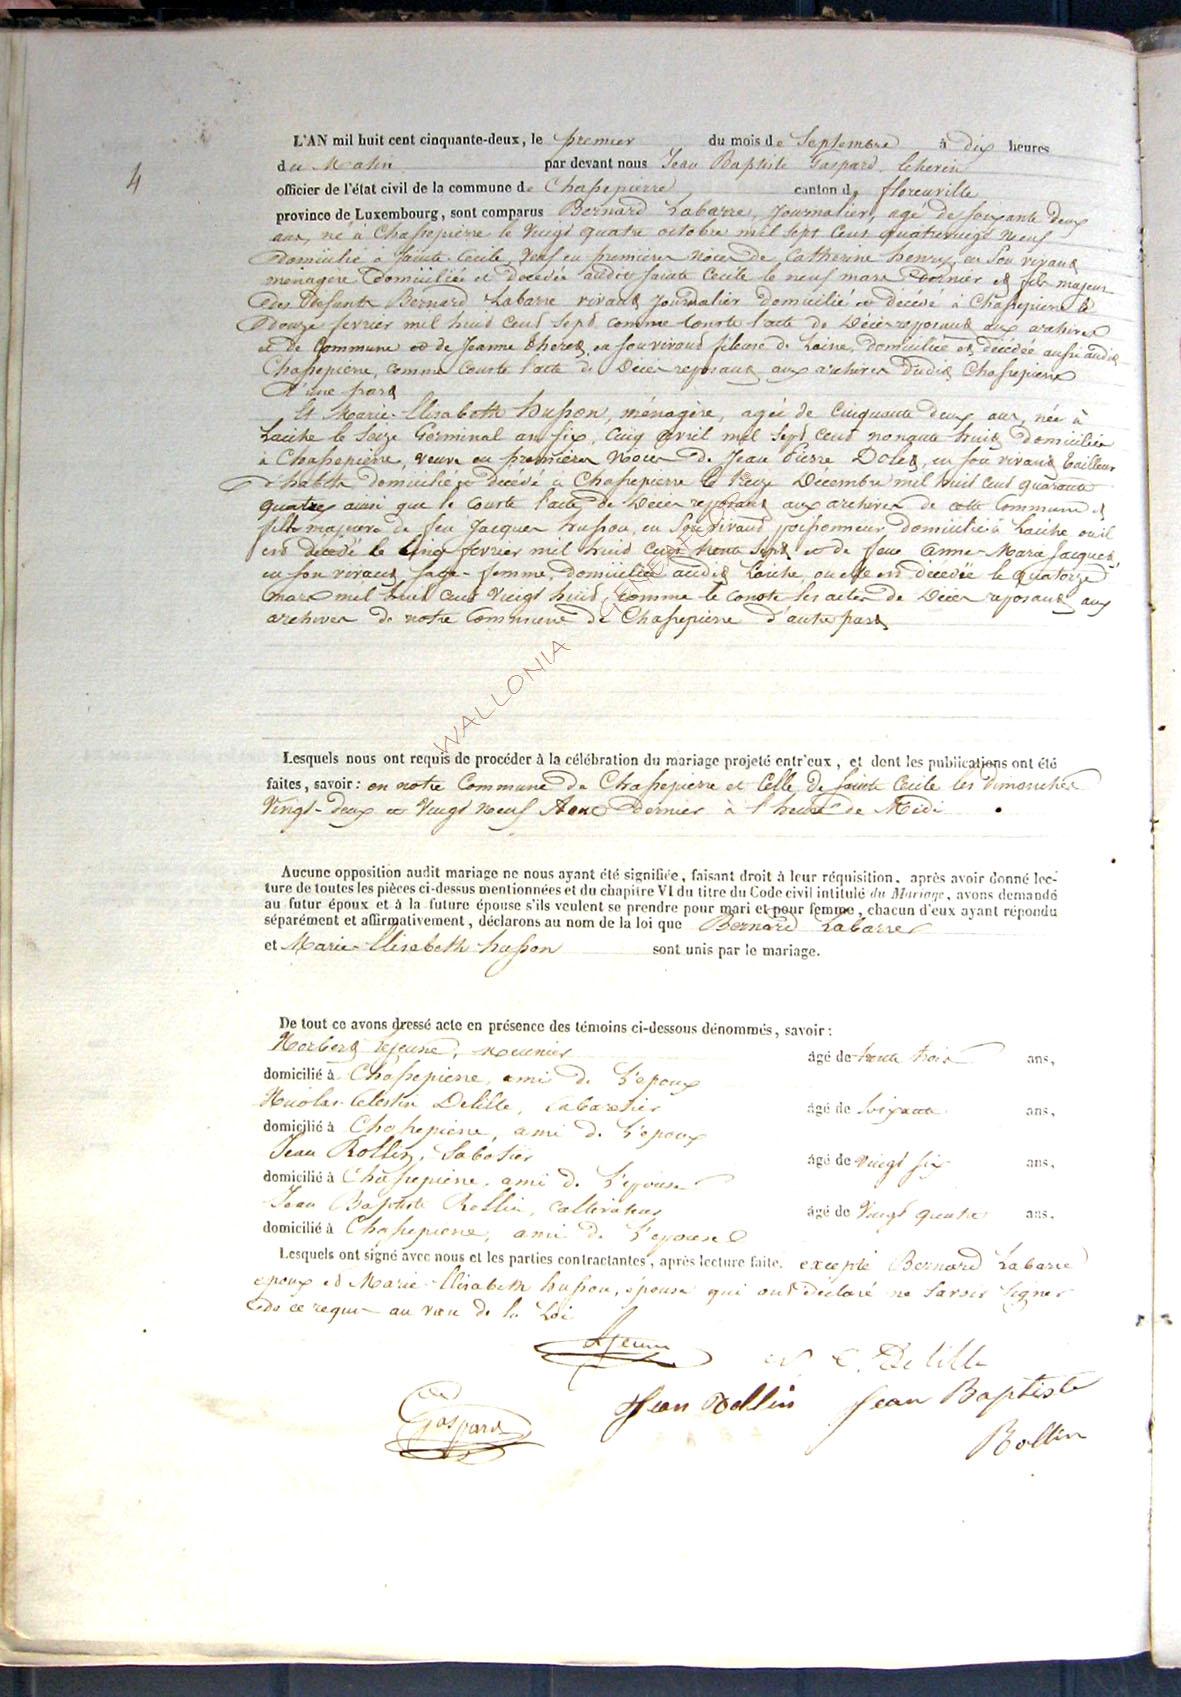 4
L'AN mil huit cent cinquante-deux, le premier du mois de Septembre à dix heures
du Matin par devant nous Jean Baptiste Gaspard Echevin
officier de l'état civil de la commune de Chassepierre, canton de florenville
province de Luxembourg, sont comparus Bernard Labarre, Journalier, agé de soixante deux
ans, né à Chassepierre le Vingt quatre octobre mil sept Cent quatrevingt neuf
domicilié à Sainte Cecile, veuf en premières noces de Catherine henry, en son vivant
ménagère Domiciliée et décédée audit Sainte Cecile le neuf mars Dernier et fils majeur
des défunts Bernard Labarre vivant Journalier domicilié et décédé à Chassepierre le
douze fevrier mil huit Cent Sept comme Conste l'acte de Décès reposant aux archives
de Commune et de Jeanne en son vivant fileuse de Laine, domiciliée et décédée aussi audit
Chassepierre, comme Conste l'acte de Décès reposant aux archives dudit Chassepierre
d'une part
Et Marie-Elisabeth husson, ménagère, agée de Cinquante deux ans, née à
Laiche le Seize Germinal an six, Cinq avril mil Sept Cent nonante huit domiciliée
à Chassepierre, veuve en premières Noces de Jean Pierre en son vivant tailleur
d'habits domicilié et décédé à Chassepierre le Décembre mil huit Cent quarante
quatre ainsi que le Conste l'acte de Décès reposant aux archives de cette Commune et
fille majeure de feu Jacques husson, en Son vivant poissonneur domicilié à Laiche où il
est décédé le Cinq fevrier mil huit Cent trente Sept et de feue Anne-Marie Jacques
en son vivant Sage-femme, domiciliée audit Laiche, où elle est décédée le quatorze
mars mil huit Cent Vingt huit, comme le Conste les actes de Décès reposant aux
archives de notre Commune de Chassepierre d'autre part
WALLONIA
Lesquels nous ont requis de procéder à la célébration du mariage projeté entr'eux, et dont les publications ont été
faites, savoir : en notre Commune de Chassepierre et Celle de Sainte Cecile les Dimanches
Vingt-deux et Vingt Neuf Aout Dernier à l'heure de Midi.
Aucune opposition audit mariage ne nous ayant été signifiée, faisant droit à leur réquisition, après avoir donné lec-
ture de toutes les pièces ci-dessus mentionnées et du chapitre VI du titre du Code civil intitulé du Mariage, avons demandé
au futur époux et à la future épouse s'ils veulent se prendre pour mari et pour femme, chacun d'eux ayant répondu
séparément et affirmativement, déclarons au nom de la loi que Bernard Labarre
et Marie-Elisabeth husson sont unis par le mariage.
De tout ce avons dressé acte en présence des témoins ci-dessous dénommés, savoir :
Norbert Lejeune, meunier âgé de trente trois ans,
domicilié à Chassepierre, ami de l'époux
Nicolas-Celestin Delille, Cabaretier âgé de Soixante ans,
domicilié à Chassepierre, ami de l'époux
Jean Rollin, Sabotier âgé de Vingt six ans,
domicilié à Chassepierre, ami de l'épouse
Jean Baptiste Rollin, Cultivateur âgé de Vingt quatre ans,
domicilié à Chassepierre, ami de l'épouse
Lesquels ont signé avec nous et les parties contractantes, après lecture faite, excepté Bernard Labarre
époux et Marie-Elisabeth husson, épouse qui ont déclaré ne Savoir Signer
de ce requis au vœu de la Loi
Lejeune
N C Delille
Gaspard
Jean Rollin
Jean Baptiste
Rollin